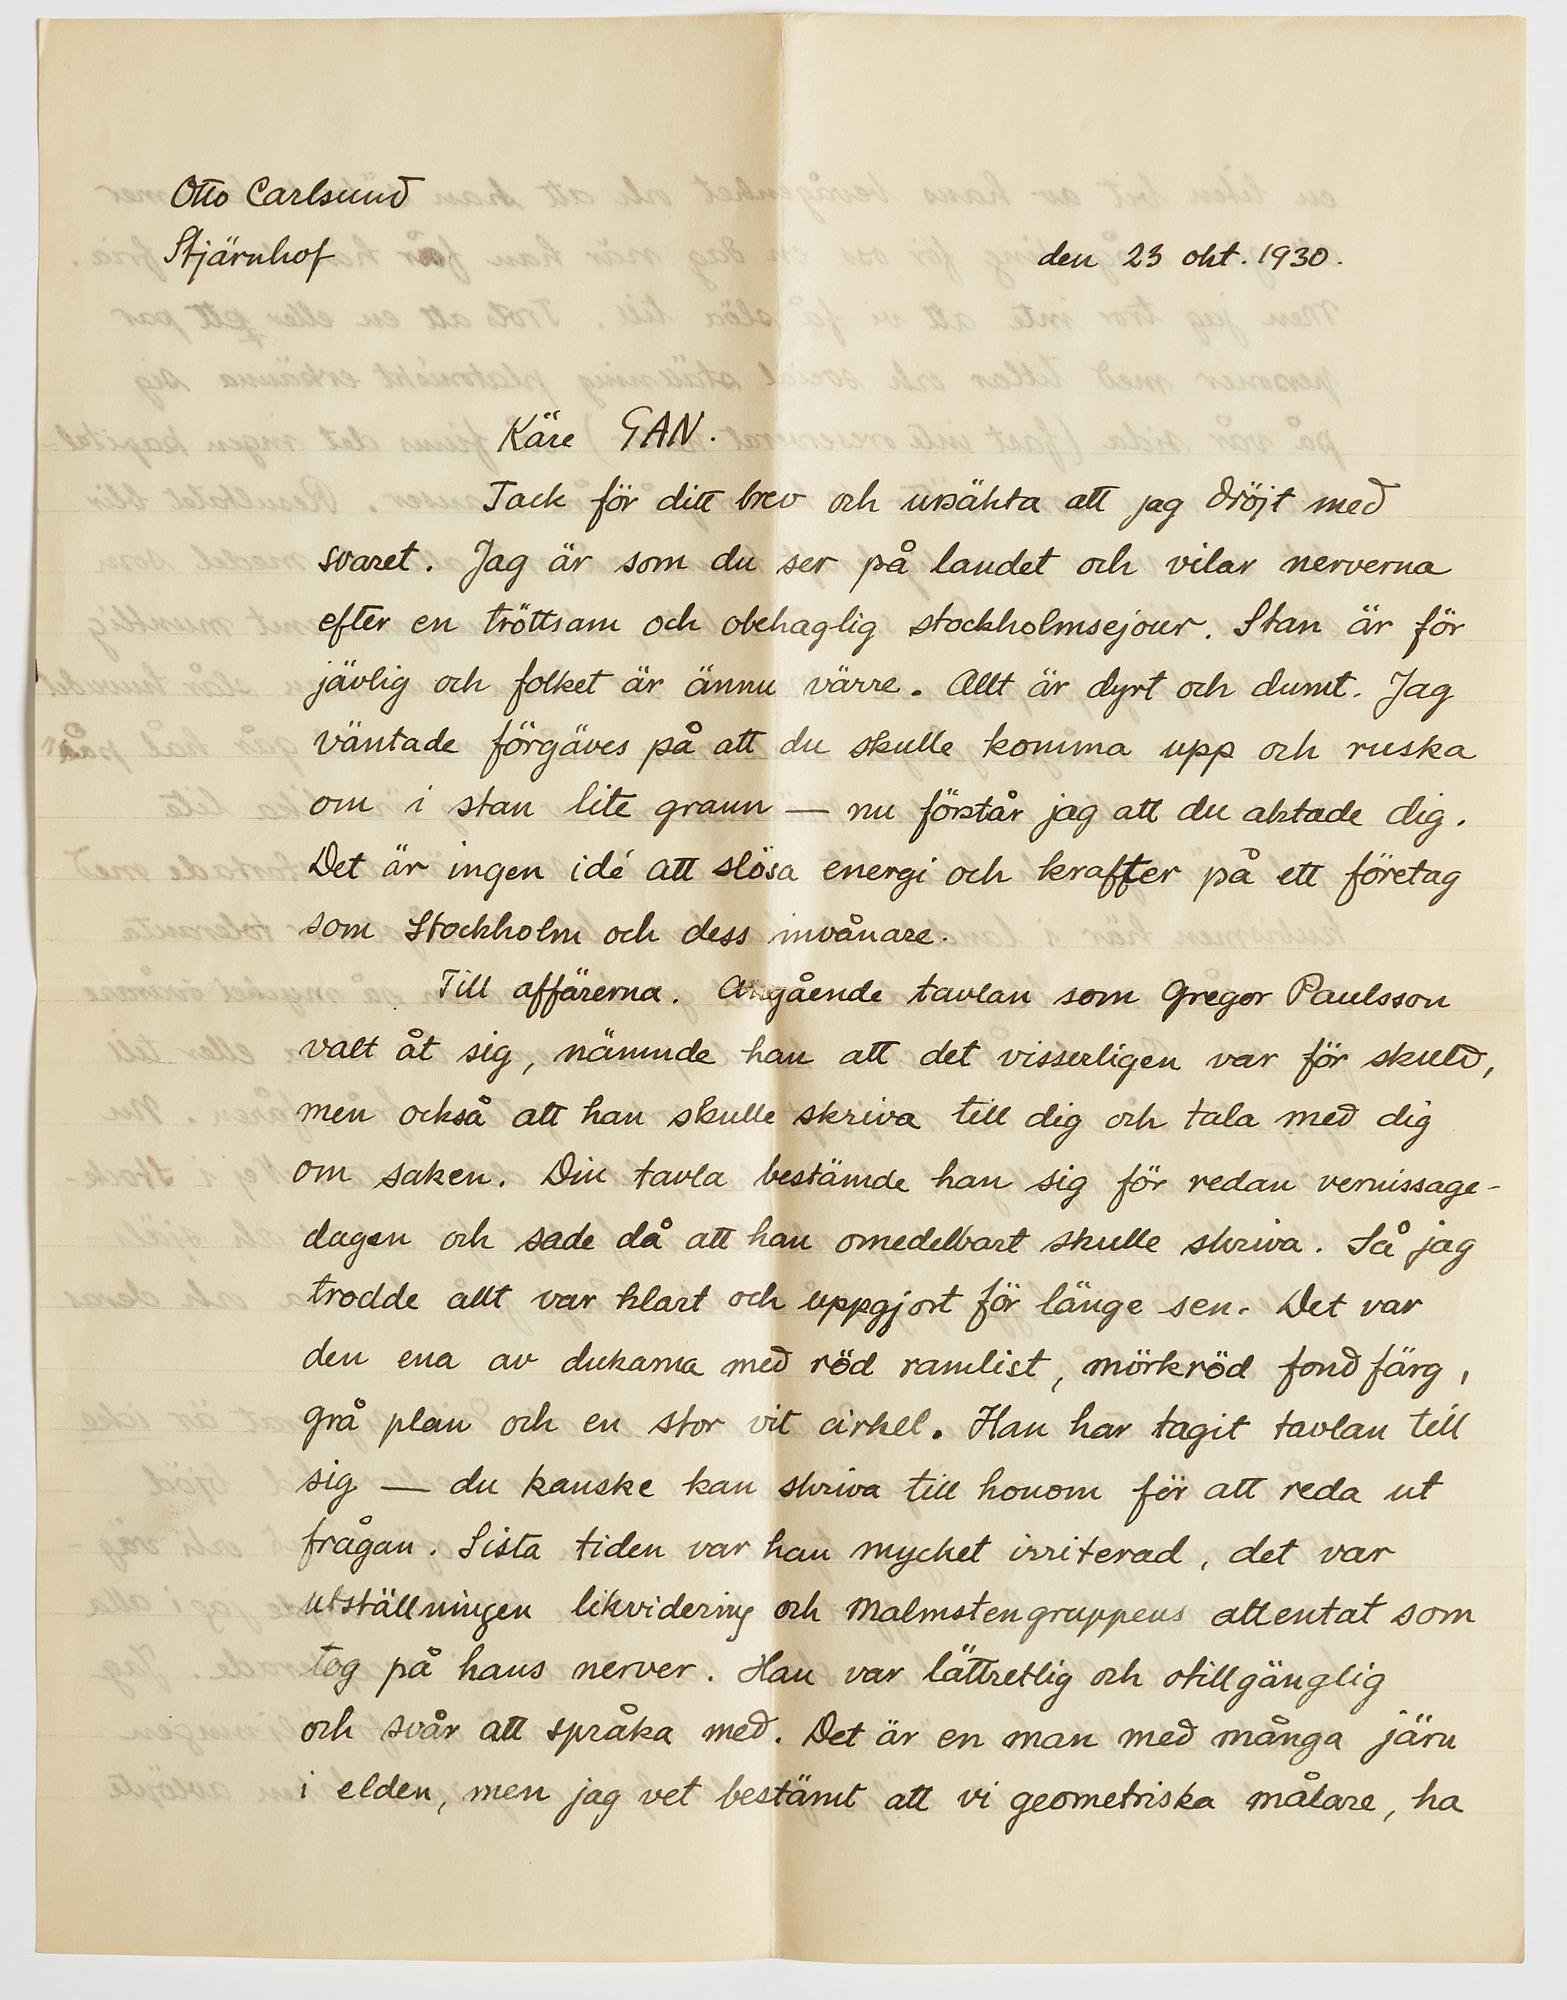 Otto Carlsund
Stjärnhof
den 23 okt. 1930.
Käre GAN.
Tack för ditt brev och ursäkta att jag dröjt med
svaret. Jag är som du ser på landet och vilar nerverna
efter en tröttsam och obehaglig stockholmsejour. Stan är för
jävlig och folket är ännu värre. Allt är dyrt och dumt. Jag
väntade förgäves på att du skulle komma upp och ruska
om i stan lite grann — nu förstår jag att du aktade dig.
Det är ingen idé att slösa energi och krafter på ett företag
som Stockholm och dess invånare.
Till affärerna. Angående tavlan som Gregor Paulsson
valt åt sig, nämnde han att det visserligen var för skuld,
men också att han skulle skriva till dig och tala med dig
om saken. Din tavla bestämde han sig för redan vernissage-
dagen och sade då att han omedelbart skulle skriva. Så jag
trodde allt var klart och uppgjort för länge sen. Det var
den ena av dukarna med röd ramlist, mörkröd fondfärg,
grå plan och en stor vit cirkel. Han har tagit tavlan till
sig — du kanske kan skriva till honom för att reda ut
frågan. Sista tiden var han mycket irriterad, det var
utställningen likvidering och Malmstengruppens attentat som
tog på hans nerver. Han var lättretlig och otillgänglig
och svår att språka med. Det är en man med många järn
i elden, men jag vet bestämt att vi geometriska målare, ha